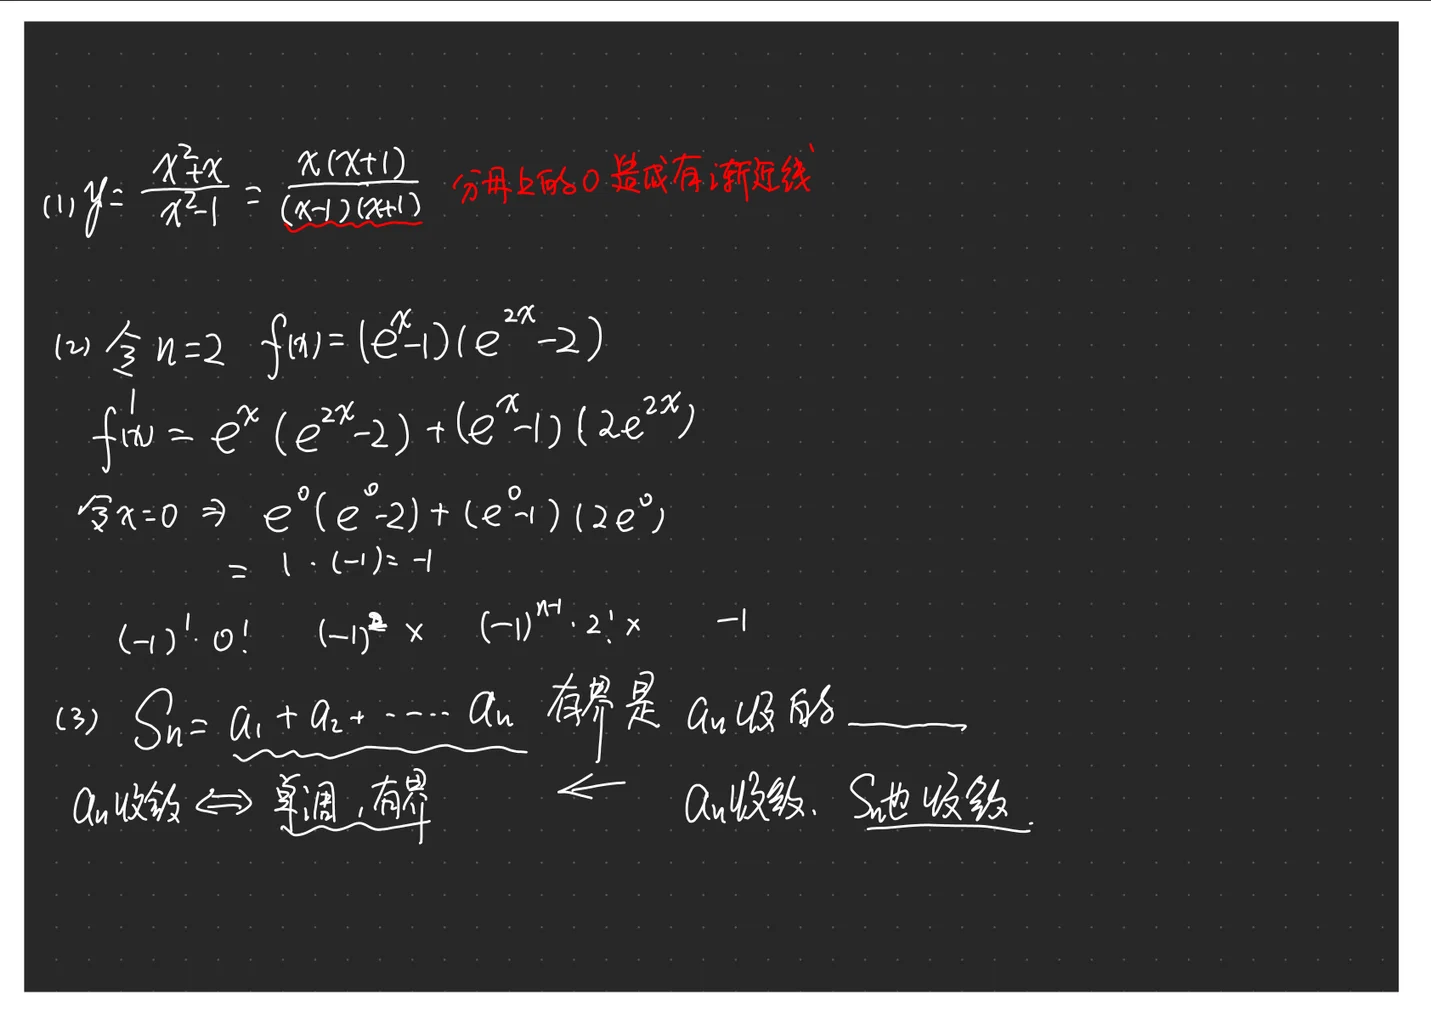 (1) y = (x²+x)/(x²-1) = x(x+1)/((x-1)(x+1)) 分母上的0造成有渐近线
(2) 令 n=2 f(x) = (e^x-1)(e^{2x}-2)
f'(x) = e^x (e^{2x}-2) + (e^x-1)(2e^{2x})
令x=0 ⇒ e^0(e^0-2) + (e^0-1)(2e^0)
= 1·(-1) = -1
(-1)^1·0! (-1)^2 × (-1)^{n-1}·2! × -1
(3) Sn = a1 + a2 + ····· an 有界是 an收的____
an收敛 ⟺ 单调,有界 ← an收敛. Sn也收敛.